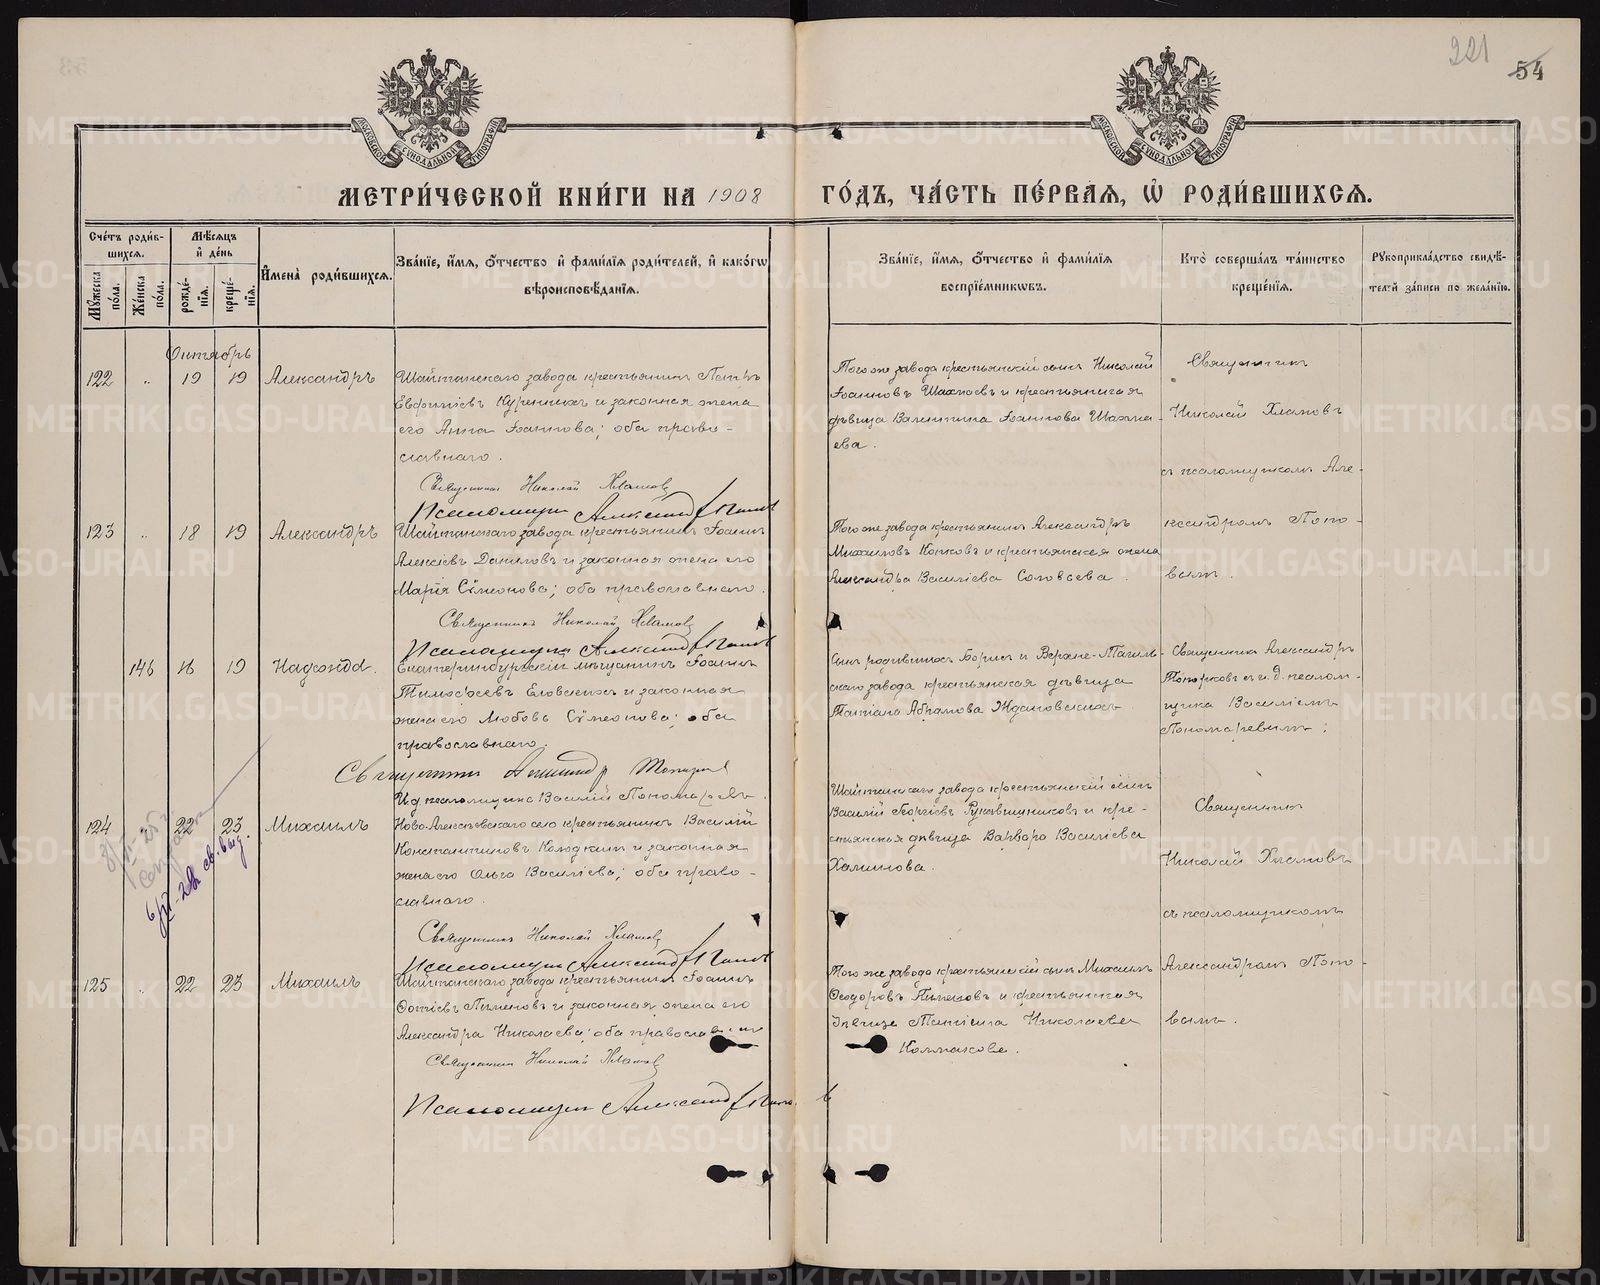 221
54
МОСКОВСКОЙ СѴНОДАЛЬНОЙ ТИПОГРАФІИ
МОСКОВСКОЙ СѴНОДАЛЬНОЙ ТИПОГРАФІИ
МЕТРИ́ЧЕСКОЙ КНИ́ГИ НА 1908 ГО́ДЪ, ЧА́СТЬ ПЕ́РВАЯ, Ѽ РОДИ́ВШИХСЯ.
Сче́тъ роди́в-
шихся.
Мꙋ́жеска по́ла.
Же́нска по́ла.
Мѣ́сяцъ
и де́нь
рожде́-
нїя.
креще́-
нїя.
И̓мена̀ роди́вшихся.
Зва́нїе, и́мя, ѻ́тчество и фами́лїя роди́телей, и како́гѡ
вѣроисповѣ́данїя.
Зва́нїе, и́мя, ѻ́тчество и фами́лїя
воспрїе́мникѡвъ.
Кто̀ соверша́лъ та́инство
креще́нїя.
Рꙋкоприкла́дство свидѣ́-
телей за́писи по жела́нїю.
Октябрь
122 " 19 19 Александръ
Шайтанскаго завода крестьянинъ Петръ
Евфиміевъ Куренныхъ и законная жена
его Анна Іоаннова; оба право-
славнаго.
Священникъ Николай Хламовъ
Псаломщикъ Александръ
Того же завода крестьянскій сынъ Николай
Іоанновъ Шахмаевъ и крестьянская
дѣвица Валентина Іоаннова Шахма-
ева.
Священникъ
Николай Хламовъ
съ псаломщикомъ Але-
123 " 18 19 Александръ
Шайтанскаго завода крестьянинъ Іоаннъ
Алексіевъ Даниловъ и законная жена его
Марія Сѵмеонова; оба православнаго.
Священникъ Николай Хламовъ
Псаломщикъ Александръ
Того же завода крестьянинъ Александръ
Михаиловъ Конковъ и крестьянская жена
Александра Василіева Соловьева.
ксандромъ Попо-
вымъ.
146 16 19 Надежда.
Екатеринбургскій мѣщанинъ Іоаннъ
Тимоѳеевъ Еловскихъ и законная
жена его Любовь Сѵмеонова; оба
православнаго.
Священникъ Александръ Топорковъ
И. д. псаломщика Василій Пономаревъ.
Сынъ родившихъ Борисъ и Верхне-Тагиль-
скаго завода крестьянская дѣвица
Татіана Абрамова Ждановскихъ
Священникъ Александръ
Топорковъ съ и. д. псалом-
щика Василіемъ
Пономаревымъ;
124 22 23 Михаилъ
Ново-Алексѣевскаго села крестьянинъ Василій
Константиновъ Колюдкинъ и законная
жена его Ольга Василіева; оба право-
славнаго.
Священникъ Николай Хламовъ
Псаломщикъ Александръ
Шайтанскаго завода крестьянскій сынъ
Василій Георгіевъ Рукавишниковъ и кре-
стьянская дѣвица Варвара Василіева
Халинова.
Священникъ
Николай Хламовъ
съ псаломщикомъ
125 " 22 23 Михаилъ
Шайтанскаго завода крестьянинъ Іоаннъ
Фотіевъ Пименовъ и законная жена его
Александра Николаева; оба православнаго
Священникъ Николай Хламовъ
Псаломщикъ Александръ
Того же завода крестьянскій сынъ Михаилъ
Ѳеодоровъ Пименовъ и крестьянская
дѣвица Татіана Николаева
Колмакова.
Александромъ Попо-
вымъ.